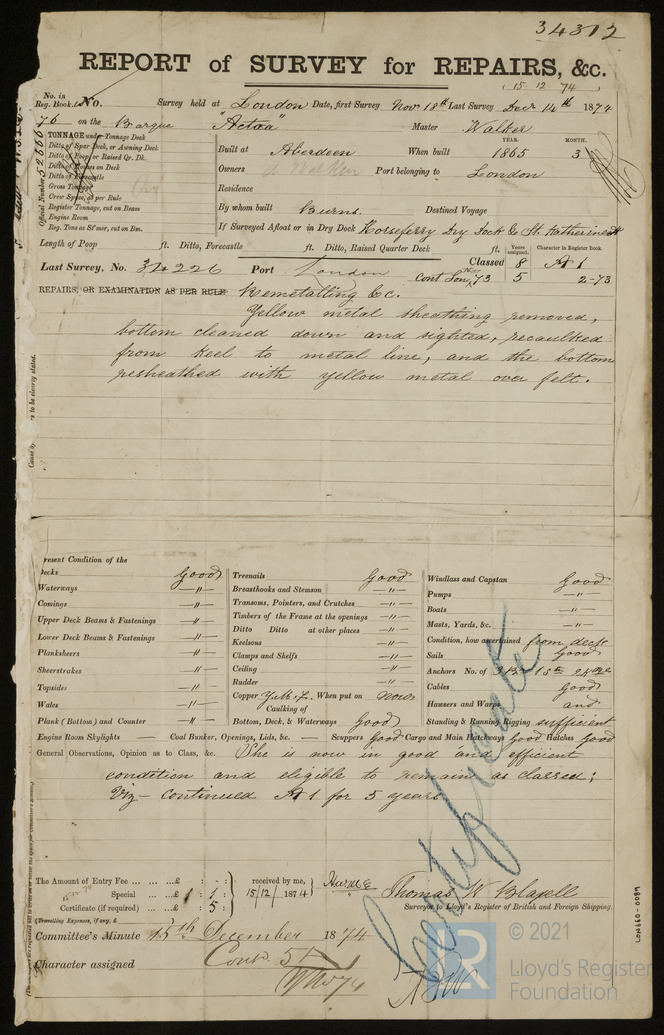 34312
REPORT of SURVEY for REPAIRS, &c.
15 12 74
No. in Reg. Book. No. Survey held at London Date, first Survey Nov 18th Last Survey Decr 14th 1874
76 on the Barque "Actæa" Master Walker
TONNAGE under Tonnage Deck
Ditto of Spar Deck, or Awning Deck
Ditto of Poop or Raised Qr. Dk.
Ditto of Houses on Deck
Ditto of Forecastle
Gross Tonnage
Crew Space, as per Rule
Register Tonnage, cut on Beam
Engine Room
Reg. Tons as St'mer, cut on Bm.
Official Number
YEAR. MONTH.
Built at Aberdeen When built 1865 3
Owners Port belonging to London
Residence
By whom built Burns. Destined Voyage
If Surveyed Afloat or in Dry Dock Horseferry Dry Dock & St. Katherine
Length of Poop ft. Ditto, Forecastle ft. Ditto, Raised Quarter Deck ft. Years assigned. Character in Register Book.
Last Survey, No. 34226 Port London Classed 8 A 1
cont Lon, 73 5 2-73
REPAIRS, OR EXAMINATION AS PER RULE Remetalling &c.
Yellow metal sheathing removed,
bottom cleaned down and sighted, recaulked
from keel to metal line, and the bottom
resheathed with yellow metal over felt.
Present Condition of the
Decks Good
Waterways — " —
Comings — " —
Upper Deck Beams & Fastenings — " —
Lower Deck Beams & Fastenings — " —
Planksheers — " —
Sheerstrakes — " —
Topsides — " —
Wales — " —
Plank (Bottom) and Counter — " —
Treenails Good
Breasthooks and Stemson — " —
Transoms, Pointers, and Crutches — " —
Timbers of the Frame at the openings — " —
Ditto Ditto at other places — " —
Keelsons — " —
Clamps and Shelfs — " —
Ceiling — " —
Rudder — " —
Copper Y.M. When put on now
Caulking of
Bottom, Deck, & Waterways Good
Windlass and Capstan Good
Pumps — " —
Boats — " —
Masts, Yards, &c. — " —
Condition, how ascertained from deck
Sails Good
Anchors No. of
Cables Good
Hawsers and Warps and
Standing & Running Rigging sufficient
Engine Room Skylights — Coal Bunker, Openings, Lids, &c. — Scuppers Good Cargo and Main Hatchways Good Hatches Good
General Observations, Opinion as to Class, &c. She is now in good and efficient
condition and eligible to remain as classed;
Viz— continued A 1 for 5 years
Certificate
The Amount of Entry Fee ... ... ...£ : :
Special ... ...£ 1 : 1 :
Certificate (if required) ... ..£ : 5 :
(Travelling Expenses, if any, £
received by me,
15/12/ 1874
Thomas W. Blaxell
Surveyor to Lloyd's Register of British and Foreign Shipping.
Committee's Minute 15th December 1874
Character assigned Contd. 5
LON660-0089
LR
© 2021
Lloyd's Register
Foundation